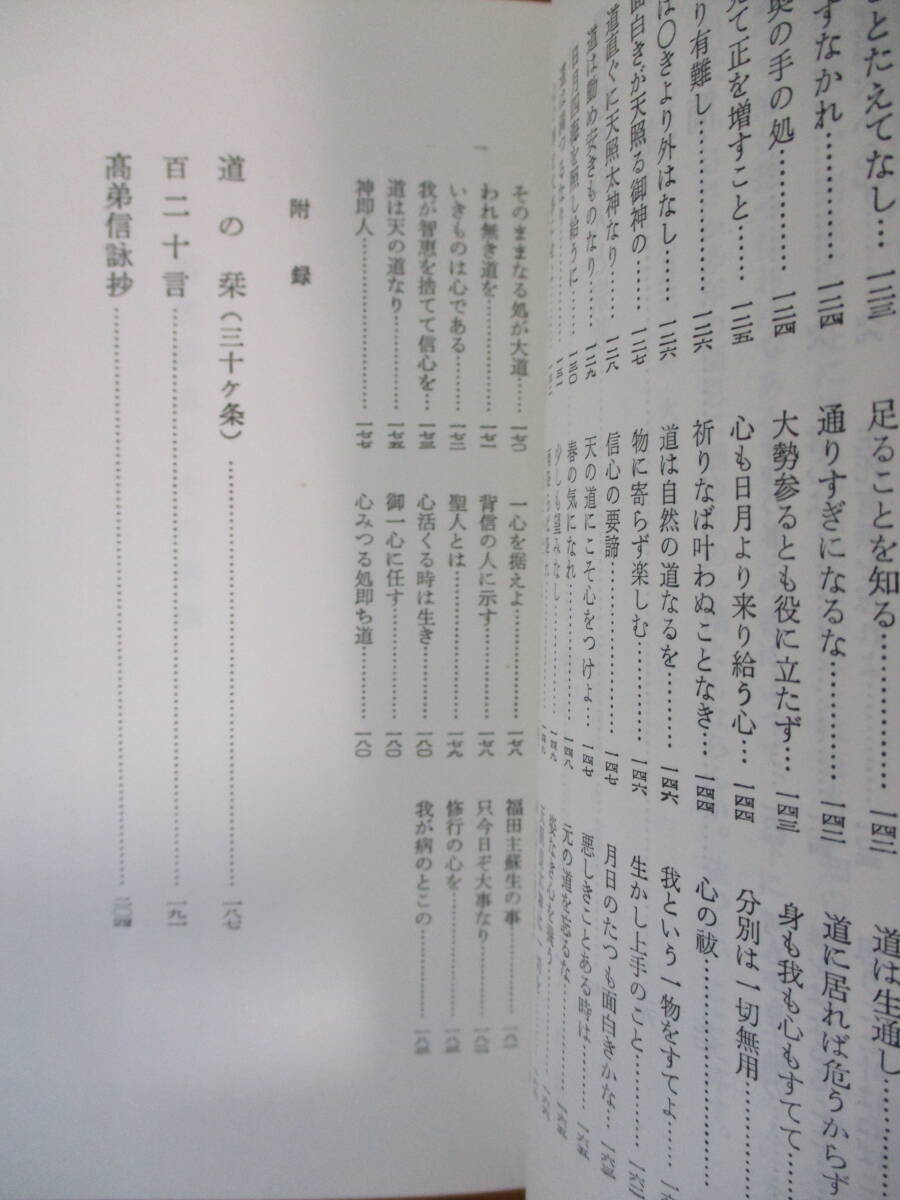 とたえてなし…一二三
すなかれ…………一二四
奥の手の処…………一二四
て正を増すこと……一二五
り有難し……………一二六
は〇きより外はなし……一二六
面白きが天照る御神の…一二七
道直ぐに天照太神なり…一二八
道は勤め安きものなり……一二九
日月四海を照し給うに……一三〇
足ることを知る…………一四二
通りすぎになるな…………一四二
大勢参るとも役に立たず…一四三
心も日月より来り給う心…一四四
祈りなば叶わぬことなき…一四四
道は自然の道なるを………一四六
物に寄らず楽しむ…………一四六
信心の要諦…………………一四七
天の道にこそ心をつけよ…一四七
春の気になれ………………一四八
少しも望みなし……………一四九
道は生通し
道に居れば危うからず
身も我も心もすてて
分別は一切無用
心の祓
我という一物をすてよ
生かし上手のこと…………一六二
月日のたつも面白きかな…一六三
悪しきことある時は………一六五
元の道を忘るな……………一六五
そのままなる処が大道……一七〇
われ無き道を………………一七一
いきものは心である………一七二
我が智恵を捨てて信心を…一七三
道は天の道なり……………一七五
神即人………………………一七七
一心を据えよ………………一七八
背信の人に示す……………一七八
聖人とは……………………一七九
心活くる時は生き…………一八〇
御一心に任す………………一八〇
心みつる処即ち道…………一八〇
福田主蘇生の事……………一八一
只今日ぞ大事なり…………一八二
修行の心を…………………一八四
我が病のとこの……………一八五
附録
道の栞(三十ケ条)………一八七
百二十言……………………一九一
高弟信詠抄…………………二〇四